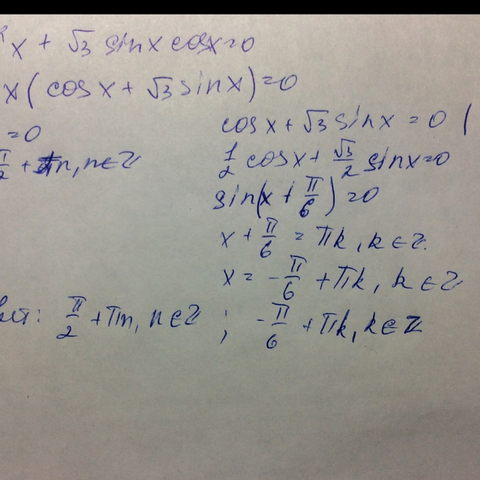 ²x + √3 sinx cosx=0
x(cosx + √3 sinx)=0
=0
π/2 + πn, n∈Z
cosx + √3 sinx = 0 |
1/2 cosx + √3/2 sinx=0
sin(x + π/6)=0
x + π/6 = πk, k∈Z.
x = -π/6 + πk, k∈Z
вет: π/2 + πn, n∈Z ; -π/6 + πk, k∈Z